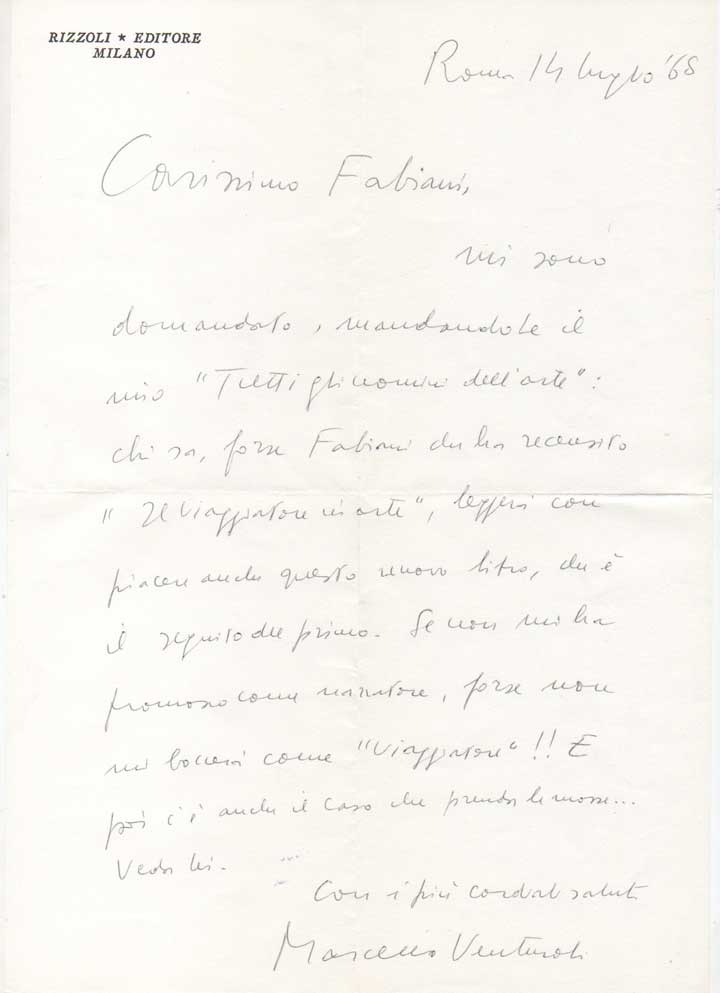 RIZZOLI ★ EDITORE
MILANO
Roma 14 luglio '68
Carissimo Fabiani,
mi sono
domandato, mandandole il
mio "Tutti gli uomini dell'arte":
chi sa, forse Fabiani che ha recensito
"Il Viaggiatore in arte", leggerà con
piacere anche questo nuovo libro, che è
il seguito del primo. Se non mi ha
promosso come narratore, forse non
mi boccerà come "Viaggiatore"!! E
poi c'è anche il caso che prenda le mosse...
Veda lei.
Con i più cordiali saluti
Marcello Venturoli